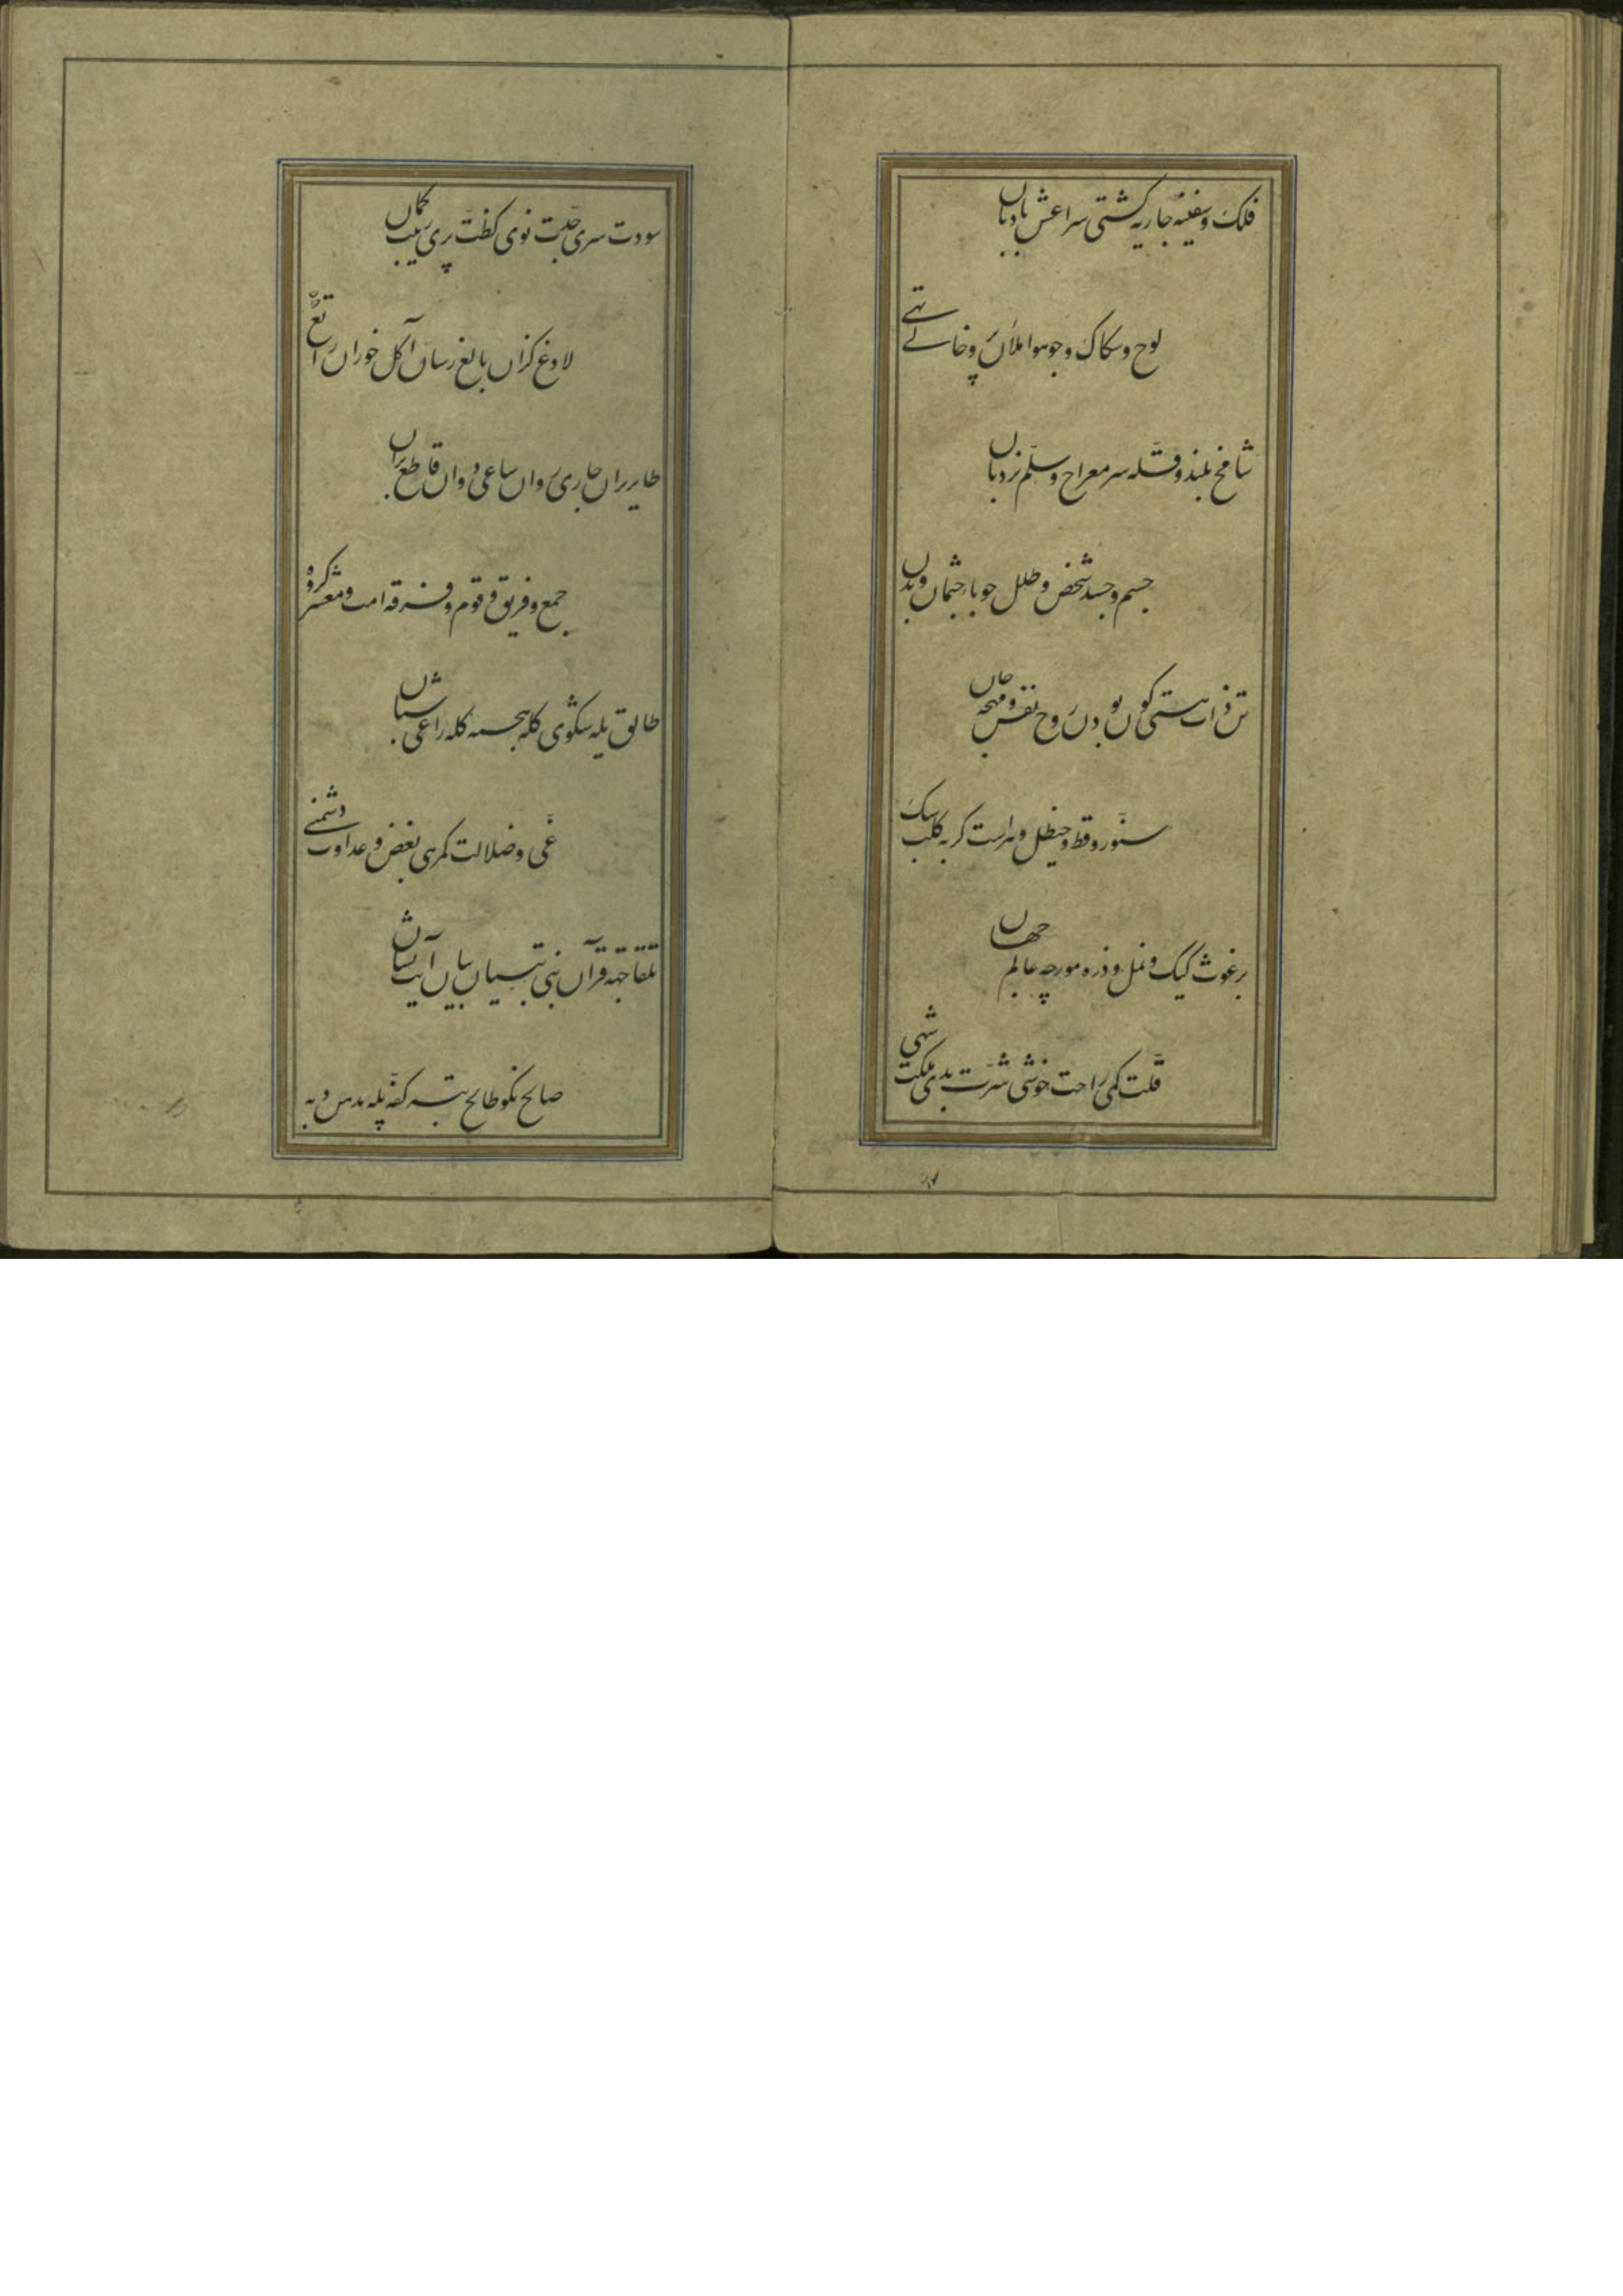 فلک و سفینه جاریه کشتی شراعش بادبان
لوح و سکاک و جو هوا ملآن پر و خالے تهے
شامخ بلند و قلّه سر معراج و سلّم نردبان
جسم و جسد شخص و طلل حوبا جثمان و بدن
تن ذات هستی کون بودن روح نفس و مهجه جان
سنّور و قط و خیطل و هراست کربه کلب سک
برغوث کیک و نمل و ذره مورچه عالم جهان
قلّت کمی راحت خوشی شرّت بدی ملکت شهی
سری نوی کظّت پری ریب کمان
لادغ کزان بالغ رسان آکل خوران راتع
طایر پران جاری روان ساعی دوان قاطع بران
جمع و فریق و قوم و فرقه امت و معشر کروه
طالق یله شکوی کله کله راعی شبان
غیّ و ضلالت کمرهی بغض و عداوت دشمنے
تلقا جهه قرآن نبی تبیان بیان آیت نشان
صالح نکو طالح تبه کفّه پله